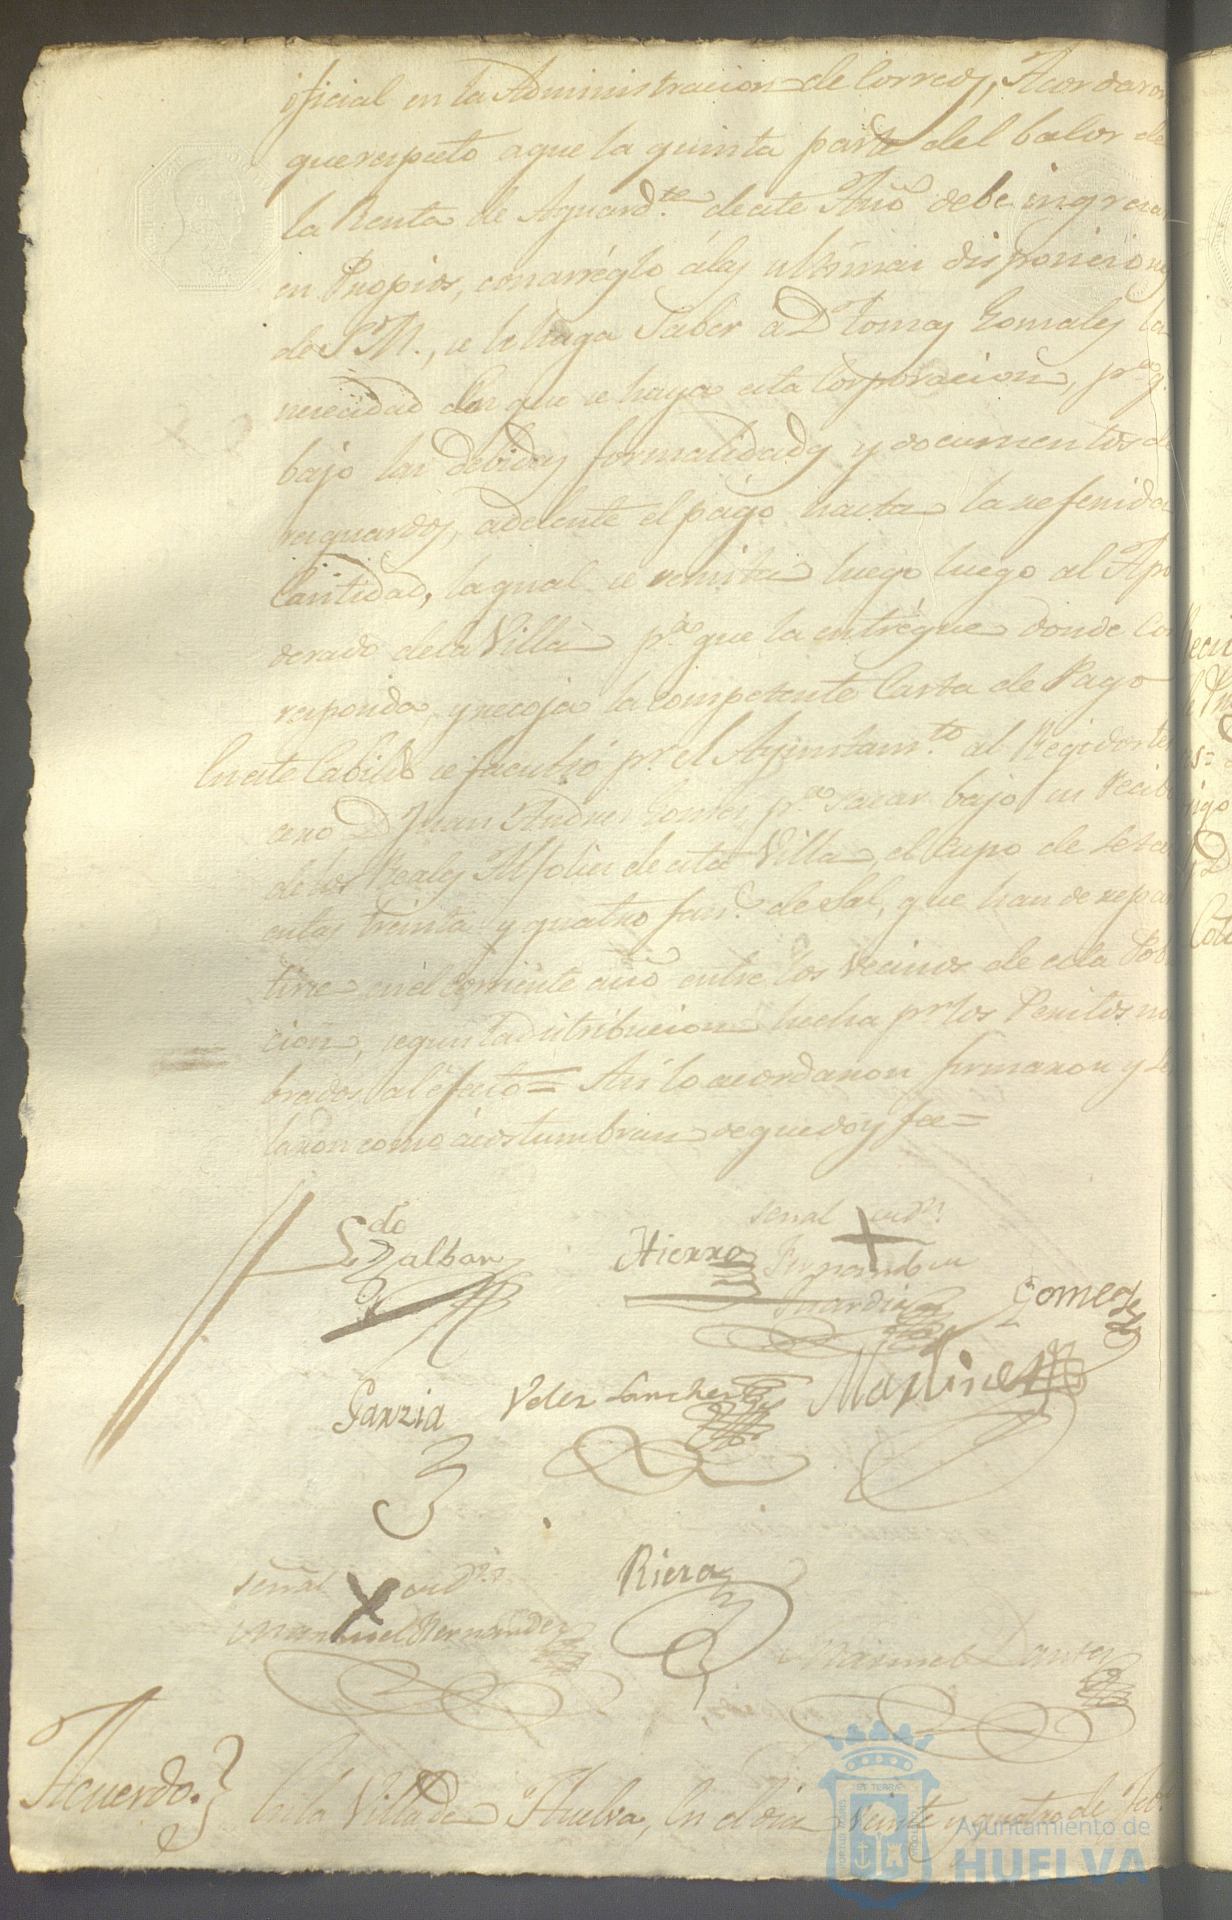 oficial en la Administracion de Correos, Acordaron
que respecto aque la quinta parte del balor de
la Renta de Aguard.te de este Año debe ingresar
en Propios, con arreglo álas ultimas disposicione
de S. M., se le haga Saber a D.n Tomas Gonzales la
necesidad en que se haya esta Corporacion, p.a q.
bajo las debidas formalidades y documentos de
resguardos, adelante el págo hasta la referida
Cantidad, la qual se remita luego luego al Apo
derado dela Villa p.a que la entrégue donde Cor
responda, y recoja la competente Carta de Pago
En este Cabildo se facultó p.r el Ayuntam.to al Regidor ter
cero D.n Juan Andres Gomez, p.a sacar bajo su recibo
de los Reales Alfolies de esta Villa, el Cupo de
treinta y quatro fan.s de Sal, que han de repar
tirse en el corriente año entre los Vecinos de esta Pob
cion, segun la distribucion hecha p.r los Peritos no
brados al efecto = Asi lo acordaron firmaron y se
laron como ácostumbran de que doy fee =
señal
L.do Zalbar Hierro Fernando
Gomez
Garzia Velez Sanchez Martinez
señal
Manuel Hernandez Riera
Manuel
Acuerdo. En la Villa de Huelva, En el dia veinte y quatro de Feb.
Ayuntamiento de
HUELVA